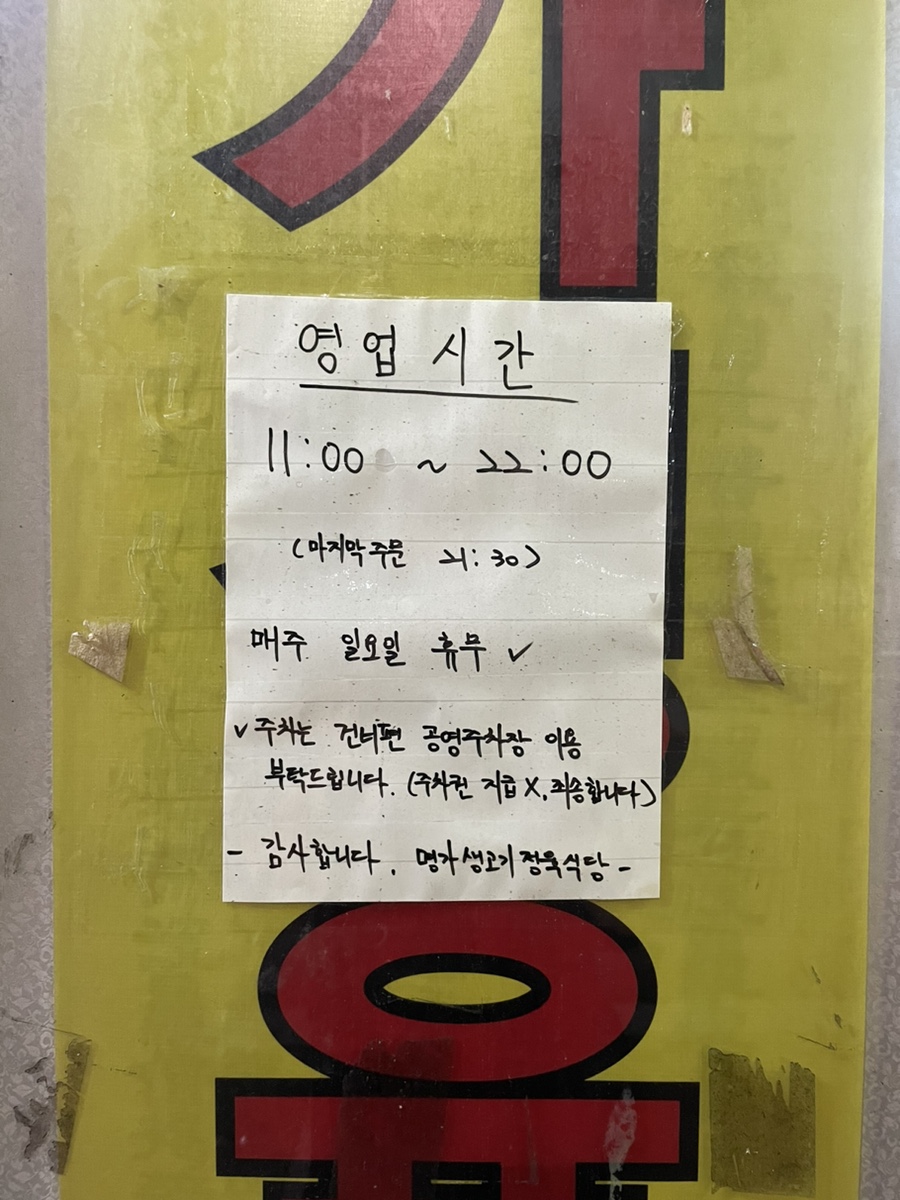 영업시간
11:00 ~ 22:00
(마지막 주문 21:30)
매주 일요일 휴무 ✓
✓ 주차는 건너편 공영주차장 이용
부탁드립니다. (주차권 지급 X, 죄송합니다)
- 감사합니다. 명가생고기정육식당 -